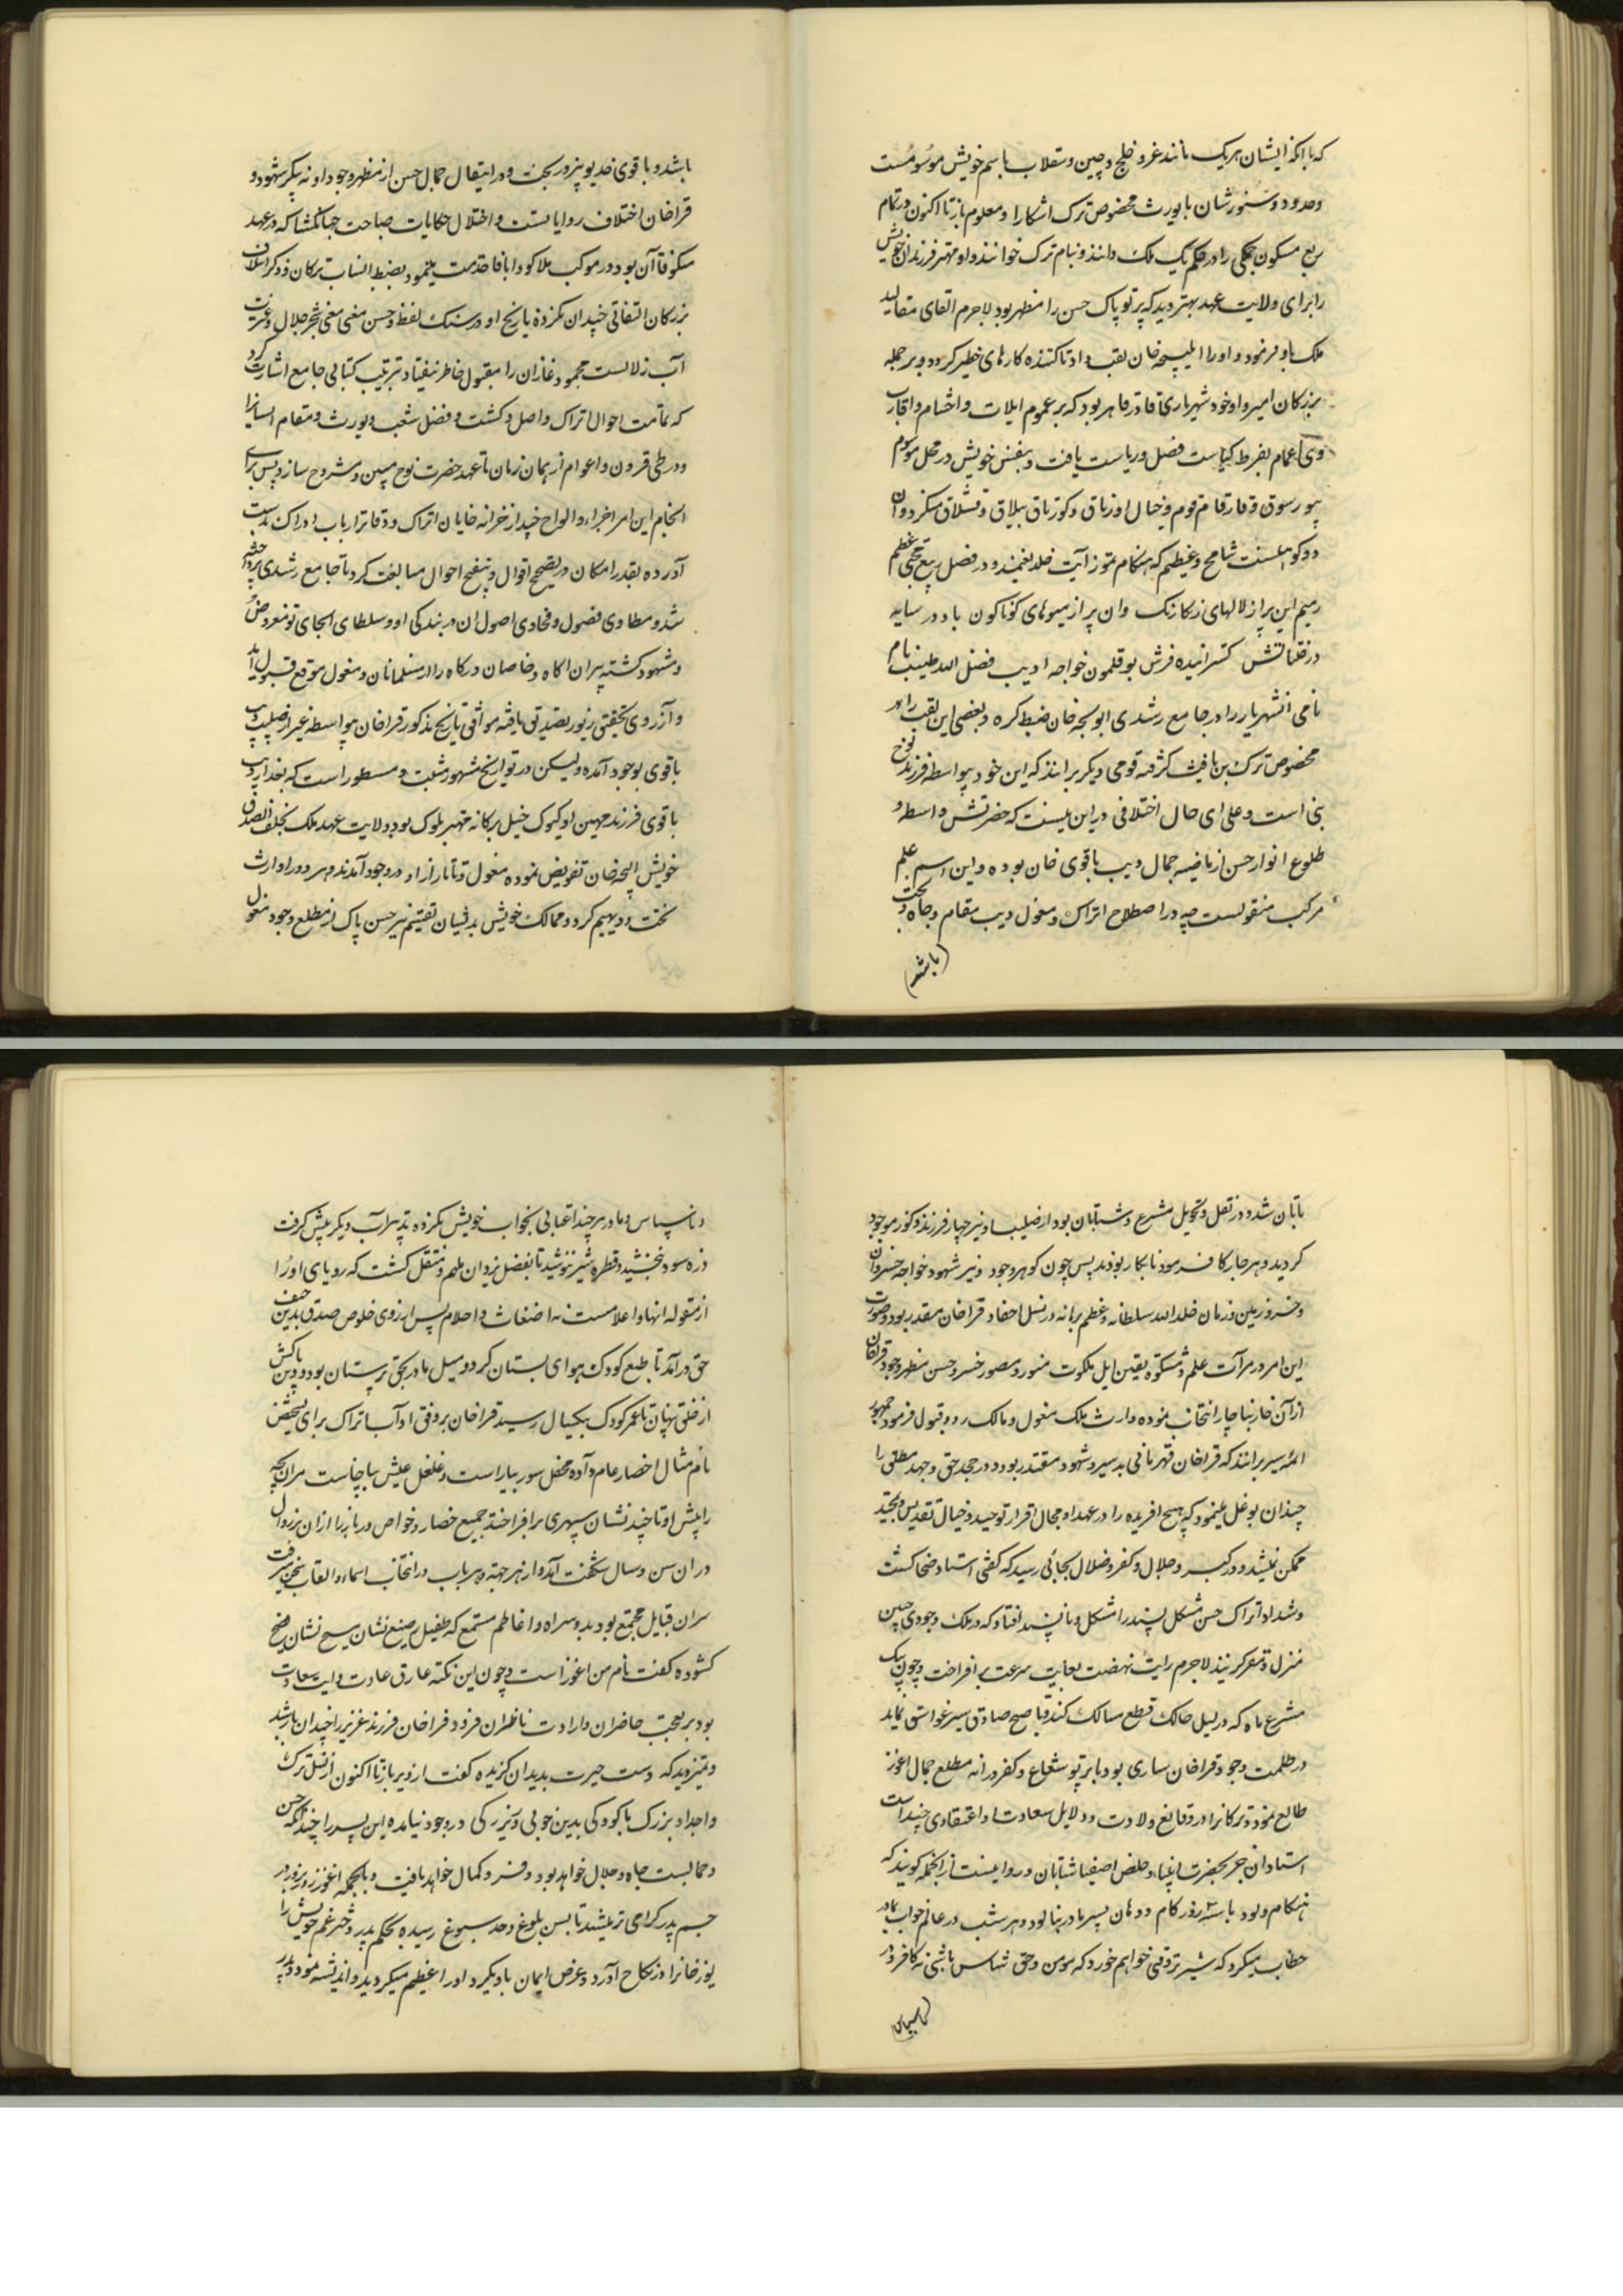 که با آنکه ایشان هریک مانند غز و خلج و چین و سقلاب باسم خویش موسومست
وحدود و سنورشان با یورث مخصوص ترک اشکارا و معلوم باز تا اکنون در تمام
ربع مسکون جملکی را در حکم یک ملک دانند و بنام ترک خوانند و او مهتر فرزندان خویش
را برای ولایت عهد بهتر دید که پرتو پاک حسن را مظهر بود لاجرم القای مقالید
ملک باو فرمود و او را ایلیجه خان لقب داد تا کننده کارهای خطیر کردد و بر جمله
بزرکان امیر و او خود شهریاری قادر قاهر بود که بر عموم ایلات و احشام و اقارب
و اعمام بفرط کیاست فضل و ریاست یافت و بنفس خویش در محل موسوم
قوم و خیال اورتاق و کورتاق ییلاق و قشلاق میکرد و آن
دو کوهیست شامخ و عظیم که هنکام تموز آیت خلد نعیمند و در فصل ربیع
این پر از لالهای رنکارنک و ان پر از میوهای کوناکون باد در سایه
درختانش کسترانیده فرش بوقلمون خواجه ادیب فضل الله طبیب نام
نامی انشهریار را در جامع رشدی ابوبجه خان ضبط کرده و بعضی این لقب را در
مخصوص ترک بن یافث کرفته قومی دیکر برانند که این خود بیواسطه فرزند نوح
نبی است و علی ای حال اختلافی در این نیست که حضرتش واسطه
طلوع انوار حسن از ناصیه جمال دیب باقوی خان بوده و این اسم علم
مرکب منقولست چه در اصطلاح اتراک و مغول دیب مقام و جاه و تخت
(باشد)
باشد و باقوی خدیو پیروز بخت و در انتقال جمال حسن از مظهر وجود او به پیکر شهود
قراخان اختلاف روایاتست و اختلال حکایات صباحت جهانکشا که در عهد
منکوقاآن بود در موکب هلاکو و اباقا خدمت مینمود بضبط انساب ترکان و ذکر اسلاف
بزرکان التفاتی چندان نکرده تاریخ او در سبک لفظ و حسن معنی
آب زلالست محمود غازان را مقبول خاطر نیفتاد بترتیب کتابی جامع اشارت کرد
که تمامت احوال اتراک و اصل و کشت و فضل شعب و یورث و مقام ایشانرا
در طی قرون و اعوام از همان زمان تا عهد حضرت نوح مبین و مشروح سازد پس برای
انجام این امر اجزاء و الواح چند از خزانه خانان اتراک و دفاتر ارباب ادراک بدست
آورده بقدر امکان در تصحیح اقوال و تنقیح احوال مبالغت کرد تا جامع رشدی پرداخته
شد و مطاوی فصول و فحاوی اصول ان در بندکی او و سلطان الجایتو معروض
و مشهود کشته پیران اکاه و خاصان درکاه را از مسلمانان و مغول موقع قبول آمد
و از روی تحقیق زیور تصدیق یافته موافق تاریخ مذکور قراخان بیواسطه غیر از صلب دیب
باقوی بوجود آمده و لیکن در تواریخ مشهور مثبت و مسطور است که بعد از دیب
باقوی فرزند مهین او کیوک خیل برکانه مهتر ملوک بود و ولایت عهد ملک بخلف الصدق
خویش الیجه خان تفویض نموده مغول و تاتار از او در وجود آمدند و هر دو را وارث
تخت و دیهیم کرد و ممالک خویش بدیشان تقسیم نیر حسن پاک از مطلع وجود مغول
تابان شد و در نقل و تحویل مشرع و شتابان بود از صلب او نیز چهار فرزند ذکور موجود
کردید و هر چهار کافر و نابکار بودند پس چون کوهر وجود و نیر شهود خواجه خسروان
و خسرو زمین و زمان خلد الله سلطانه و عظم برهانه در نسل احفاد قراخان مقدر بود و صورت
این امر در مرآت علم و مشکوة یقین اهل ملکوت منور و مصور خسرو حسن مظهر وجود قراخان
از آن چار بناچار انتخاب نموده وارث ملک مغول و مالک رد و قبول فرمود جمهور
ائمه سیر برانند که قراخان قهرمانی بدسیر و شهود مقتدر بود و در جحد حق و جهد مطلق را
چندان توغل مینمود که هیچ افریده را در عهد او مجال اقرار توحید و خیال تقدیس و تمجید
ممکن نمیشد و در کبر و جلال و کفر و ضلال بجائی رسید که کفتی استاد ضحاکست
و شداد اتراک حسن مشکل پسند را مشکل و ناپسند افتاد که در ملک وجودی چنین
منزل و مقر کزیند لاجرم رایت نهضت بغایت سرعت بر افراخت و چون پیک
مشرع ماه که در لیل حالک قطع مسالک کند تا صبح صادق سیر غواسق نماید
در ظلمت وجود قراخان ساری بود تا پرتو شعاع و کفر در انه مطلع جمال اغوز
طالع نمود و ترکانرا در وقایع ولادت و دلایل سعادت او اعتقادی چند است
استادان خبر بحضرت انبیاء و مخلص اصفیا شتابان و روایتست از انجمله کویند که
هنکام ولود تا سه روز کام و دهان بشیر مادر نیالود و هر شب در عالم خواب بمادر
خطاب میکرد که شیر تو وقتی خواهم خورد که مومن و حق شناس باشی نه کافر و
(ناسپاس)
و ناسپاس و مادر هر چند اعتنائی بخواب خویش نکرده تدبیرات دیکر پیش کرفت
ذره سود نبخشید و قطره شیر ننوشید تا بفضل یزدان ملهم و منتقل کشت که رویای او را
از مقوله انها و اعلامست نه اضغاث و احلام پس از روی خلوص صدق بدین حنیف
حق در آمد تا طبع کودک هوای بستان کرد و میل مادر بحق پرستان بود و دین پاکش
از خلق نهان تا عمر کودک بیکسال رسید قراخان بر وفق آداب اتراک برای تشخیص
نام مثال احضار عام داده محفل سور بیاراست و غلغل عیش بپاخاست مران بچه
را پیش او تا چند نشان سپهری بر افراخته جمیع حضار و خواص دربار را از ان نزول
در ان سن و سال شکفت آمد و از هر جهت و هر باب در انتخاب اسماء و القاب سخن میرفت
سران قبایل مجتمع بودند و سراه و اعاظم مستمع که طفل بدیع نشان مسیح نشان بنطق فصیح
کشوده کفت نام من اغوز است و چون این نکته خارق عادت و آیت سعادت
بود بر تعجب حاضران و ارادت ناظران فزود قراخان فرزند عزیز را چندان با رشد
و تمیز دید که دست حیرت بدندان کزیده کفت از دیر باز تا اکنون از نسل ترک
و اجداد بزرک ما کودکی بدین خوبی و تیزرکی در وجود نیامده این پسر را چندانکه حسن
و جمالست جاه و جلال خواهد بود و فر و کمال خواهد یافت و بالجمله اغوز روز بروز در
چشم پدر کرامی تر میشد تا بسن بلوغ و حد سبوغ رسیده بحکم پدر دختر عم خویش را
یوزخانرا در نکاح آورد و عرض ایمان بدو کرد و او را عظیم میکردید و اندیشه مود